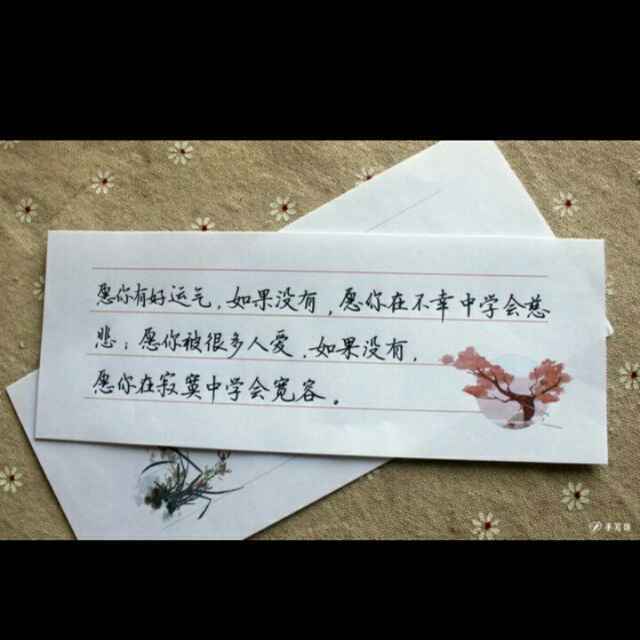 愿你有好运气,如果没有,愿你在不幸中学会慈
悲;愿你被很多人爱,如果没有,
愿你在寂寞中学会宽容。